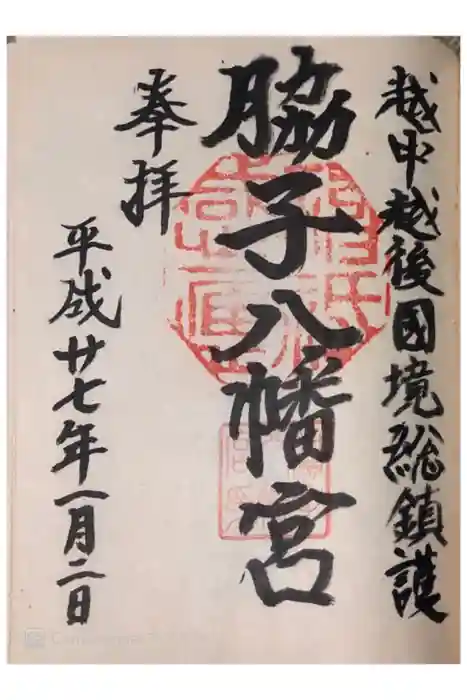 越中越後國境総鎮護
脇子八幡宮
奉拝
平成廿七年一月二日